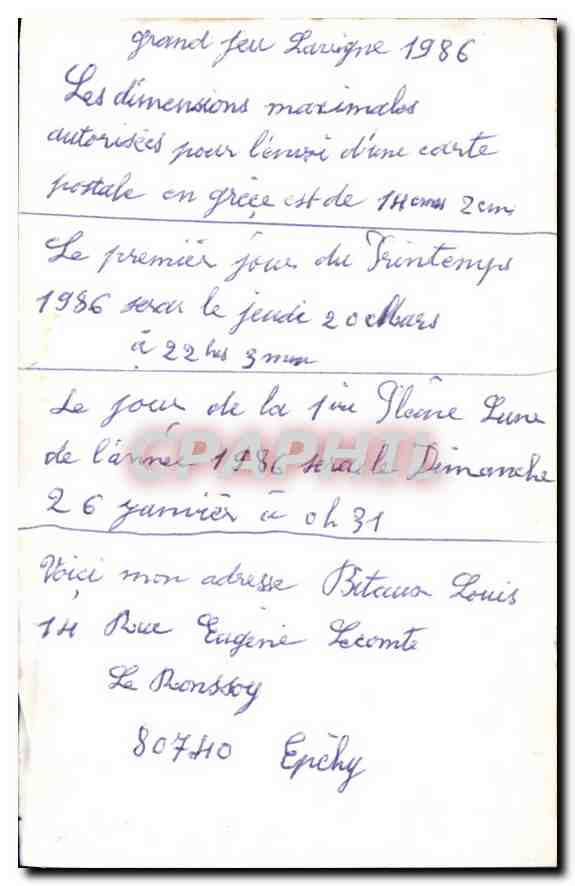 grand jeu Lavigne 1986
Les dimensions maximales
autorisées pour l'envoi d'une carte
postale en grèce est de 14 cm 2 cm
Le premier jour du Printemps
1986 sera le jeudi 20 Mars
à 22 hrs 3 mn
Le jour de la 1ère Pleine Lune
CPAPHIL
de l'année 1986 sera le Dimanche
26 janvier à 0h31
Voici mon adresse Louis
14 Rue Eugène Lecomte
Le Ronssoy
80740 Epéhy